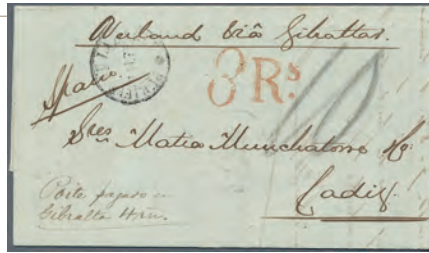 Overland viâ Gibraltar.
Spain
3 Rs.
10
Sres Matia Ho
Cadiz.
Porte pagado en
Gibraltar